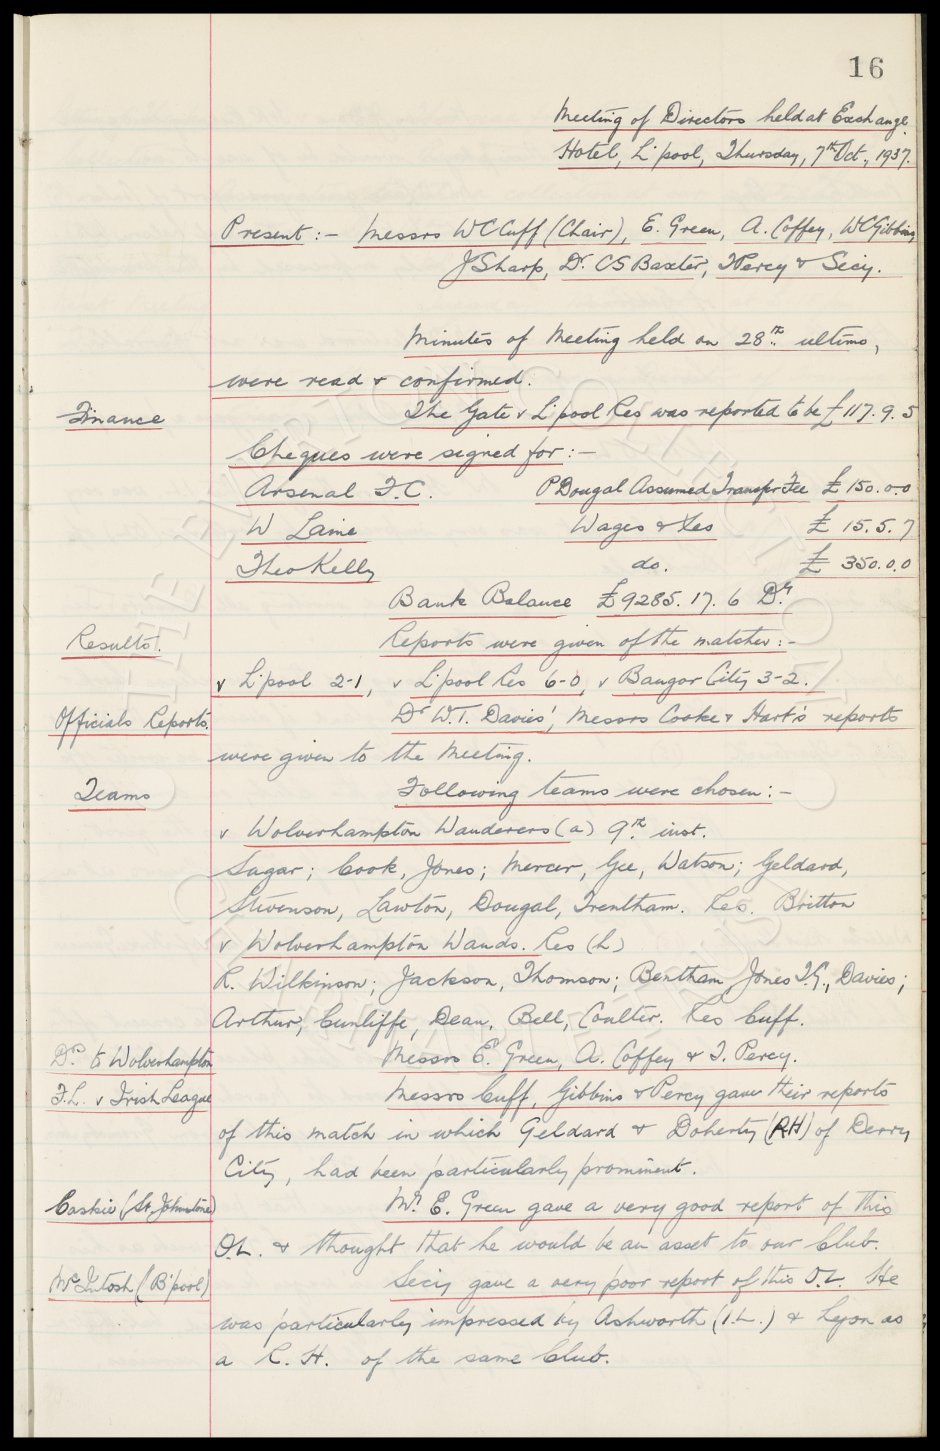 16
Meeting of Directors held at Exchange
Hotel, L'pool, Thursday, 7th Oct., 1937.
Present :- Messrs W C Cuff (Chair), E. Green, A. Coffey, W C Gibbins
J Sharp, Dr. C S Baxter, T Percy & Secy.
Minutes of Meeting held on 28th ultimo,
were read & confirmed.
Finance The Gate v L'pool Res was reported to be £117. 9. 5
Cheques were signed for :-
Arsenal F.C. P Dougal Assumed Transfer Fee £ 150. 0. 0
W Laine Wages & Ins £ 15. 5. 7
Theo Kelly do. £ 350. 0. 0
Bank Balance £9285. 17. 6 Dr.
Results. Reports were given of the matches :-
v L'pool 2-1, v L'pool Res 6-0, v Bangor City 3-2.
Officials Reports. Dr W.T. Davies', Messrs Cooke & Hart's reports
were given to the Meeting.
Teams Following teams were chosen :-
v Wolverhampton Wanderers (a) 9th inst.
Sagar; Cook, Jones; Mercer, Gee, Watson; Geldard,
Stevenson, Lawton, Dougal, Trentham. Res. Britton
v Wolverhampton Wands. Res (h)
R. Wilkinson; Jackson, Thomson; Bentham, Jones T.G., Davies;
Arthur, Cunliffe, Dean, Bell, Coulter. Res Cuff.
Dr to Wolverhampton Messrs E. Green, A. Coffey & T. Percy.
F.L. v Irish League Messrs Cuff, Gibbins & Percy gave their reports
of this match in which Geldard & Doherty (RH) of Derry
City, had been particularly prominent.
Caskie (St. Johnstone) Mr. E. Green gave a very good report of this
O.L. & thought that he would be an asset to our Club.
McIntosh (B'pool) Secy gave a very poor report of this O.L. He
was particularly impressed by Ashworth (I.L.) & Lyon as
a R. H. of the same Club.
THE EVERTON COLLECTION